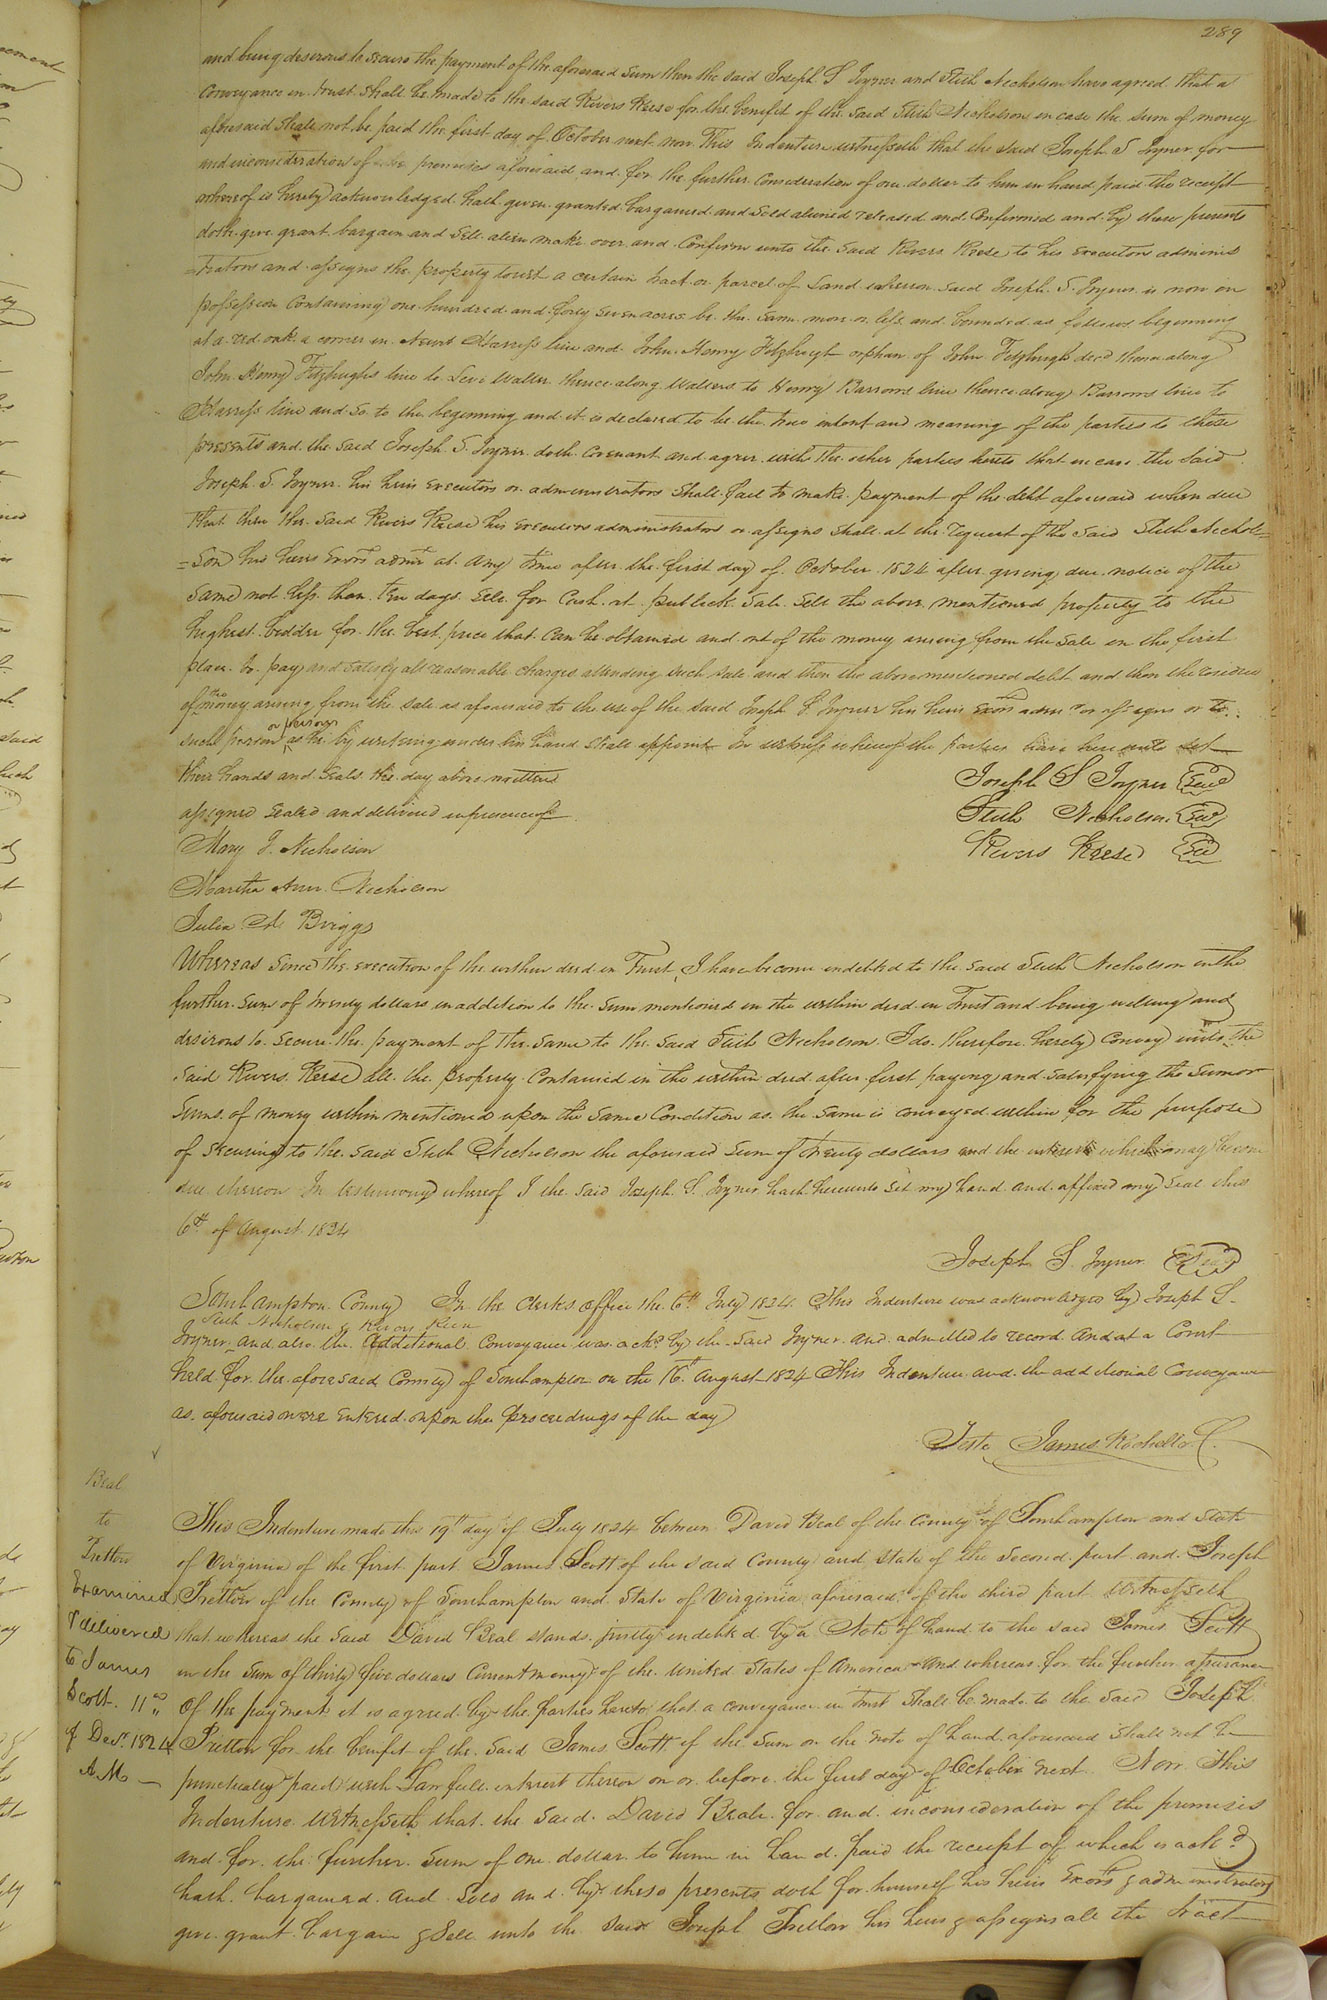 289
and being desirous to secure the payment of the aforesaid sum then the said Joseph S Joyner and Stith Nicholson have agreed that a
Conveyance in trust shall be made to the said Rivers Reese for the benefit of the said Stith Nicholson in case the sum of money
aforesaid shall not be paid the first day of October next now This Indenture witnesseth that the said Joseph S Joyner for
and inconsideration of the premises aforesaid and for the further Consideration of one dollar to him in hand paid the receipt
whereof is hereby acknowledged hath given granted bargained and sold aliened released and Confirmed and by these presents
doth give grant bargain and sell alien make over and Confirm unto the said Rivers Reese to his executors adminis
=trators and assigns the property towit a certain tract or parcel of Land whereon said Joseph S. Joyner is now in
possession Containing one hundred and forty seven acres be the same more or less and bounded as follows beginning
at a red oak a corner in Harriss line and John Henry Fitzhugh orphan of John Fitzhugh decd thence along
John Henry Fitzhughs line to Levi Waller thence along Wallers to Henry Barrows line thence along Barrows line to
Harriss line and so to the beginning and it is declared to be the true intent and meaning of the parties to these
presents and the said Joseph S. Joyner doth Covenant and agree with the other parties hereto that in case the said
Joseph S. Joyner his heirs executors or administrators shall fail to make payment of the debt aforesaid when due
that then the said Rivers Reese his executors administrators or assigns shall at the request of the said Stith Nichol=
=son his heirs Exors admrs at any time after the first day of October 1824 after giving due notice of the
same not less than ten days sell for Cash at publick sale sell the above mentioned property to the
highest bidder for the best price that Can be obtained and out of the money arising from the sale in the first
place to pay and satisfy all reasonable charges attending such sale and then the abovementioned debt and then the residue
of the money arising from the sale as aforesaid to the use of the said Joseph S. Joyner his heirs Exors admrs or assigns or to
such person or persons as he by writing under his hand shall appoint In witness whereof the parties have hereunto set
their hands and seals the day above written
Joseph S Joyner Seal
assigned sealed and delivered in presence of
Stith Nicholson Seal
Mary J. Nicholson
Rivers Reese Seal
Martha Ann Nicholson
Julia A Briggs
Whereas since the execution of the within deed in Trust I have become indebted to the said Stith Nicholson in the
further sum of twenty dollars in addition to the sum mentioned in the within deed in Trust and being willing and
desirous to secure the payment of the same to the said Stith Nicholson I do therefore hereby Convey unto the
said Rivers Reese all the property Contained in the within deed after first paying and satisfying the sum or
sums of money within mentioned upon the same Condition as the same is conveyed within for the purpose
of securing to the said Stith Nicholson the aforesaid sum of twenty dollars and the interest which may become
due thereon In testimony whereof I the said Joseph S. Joyner hath hereunto set my hand and affixed my seal this
6th of August 1824
Joseph S. Joyner Seal
Southampton County In the Clerks office the 6th July 1824. This Indenture was acknowledged by Joseph S.
Stith Nicholson & Rivers Reese
Joyner and also the Additional Conveyance was ackd by the said Joyner and admitted to record And at a Court
held for the aforesaid County of Southampton on the 16th August 1824 This Indenture and the additional Conveyance
as aforesaid were Entered upon the proceedings of the day
Teste James Rochelle C.
Beal
to
Pretlow
Examined
& delivered
to James
Scott 11th
of Decr 1824
A.M
This Indenture made this 19th day of July 1824 between David Beal of the County of Southampton and State
of Virginia of the first part James Scott of the said County and State of the second part and Joseph
Pretlow of the County of Southampton and State of Virginia aforesaid of the third part Witnesseth
that whereas the said David Beal stands justly indebted by a Note of hand to the said James Scott
in the sum of thirty five dollars Current money of the United States of America And whereas for the further assurance
of the payment it is agreed by the parties hereto that a conveyance in trust shall be made to the said Joseph
Pretlow for the benefit of the said James Scott if the sum on the note of hand aforesaid shall not be
punctually paid with Lawfull interest thereon on or before the first day of October next. Now This
Indenture Witnesseth that the said David Beale for and inconsideration of the premises
and for the further sum of one dollar to him in hand paid the receipt of which is ackd
hath bargained and sold and by these presents doth for himself his heirs Exors & administrators
give grant bargain & sell unto the said Joseph Pretlow his heirs & assigns all the tract